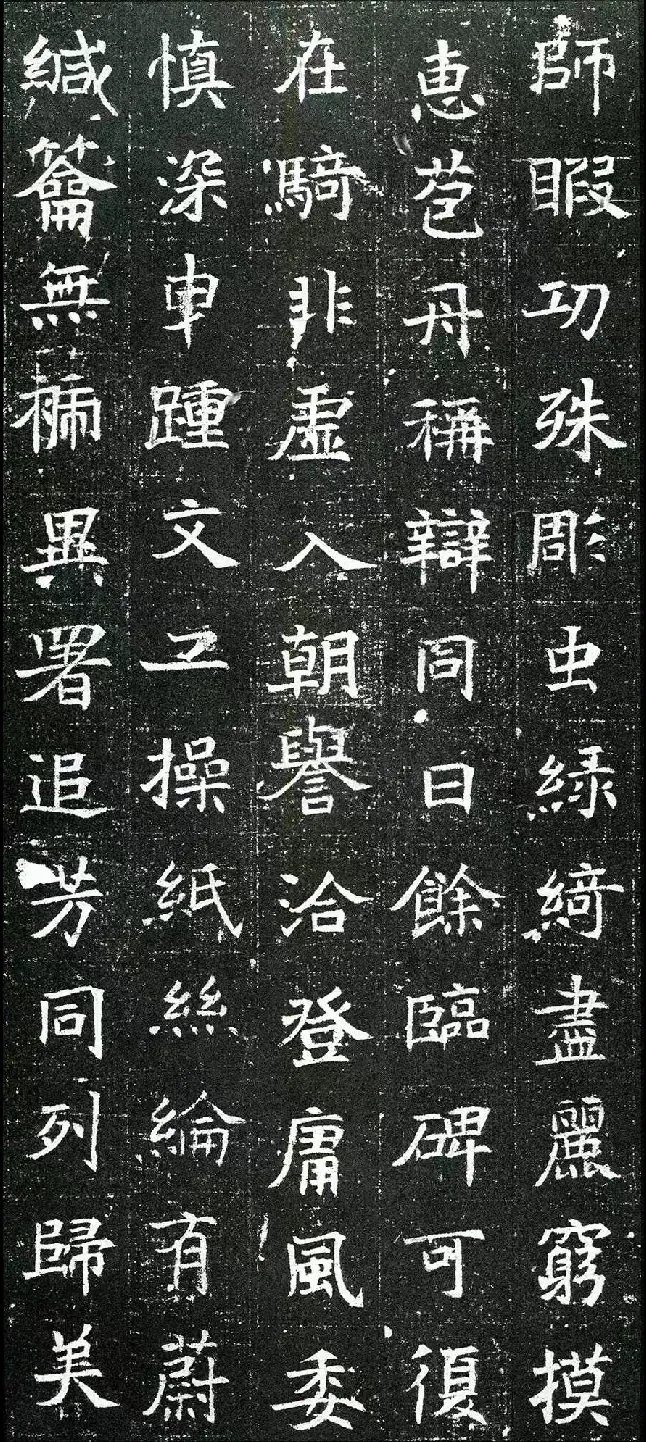 師暇功殊彫虫緑綺盡麗窮摸
恵苞丹稱辯同日餘臨碑可復
在騎非虛入朝譽洽登庸風委
慎深車踵文工操紙絲綸有蔚
緘籥無褫異署追芳同列歸美